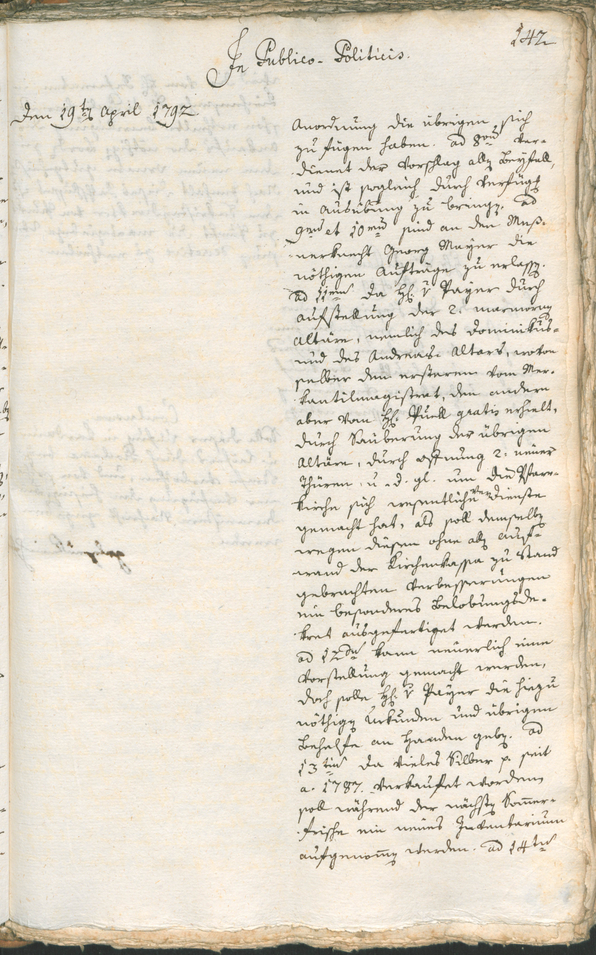 142
In Publico-Politicis.
Den 19ten April 1792
Anordnung die übrigen sich
zu fügen haben. ad 8vum ver-
dienet der Vorschlag allen Beyfall,
und ist sogleich durch Verfügen
in Ausübung zu bringen. ad
9num et 10mum sind an den Meß-
nerknecht Georg Mayer die
nöthigen Aufträge zu erlassen.
ad 11mum da H: v Payer durch
Aufstellung der 2. marmornen
Altäre, nemlich des Dominikus-
und des Andreas-Altars, wovon
selber den ersteren vom Mer-
kantilmagistrat, den andern
aber vom H: gratis erhielt,
durch Säuberung der übrigen
Altäre, durch Öffnung 2. neuer
Thüren, u. d. gl. um die Pfarr-
kirche sich wesentliche Verdienste
gemacht hat, als soll demselben
wegen diesen ohne allen Auf-
wand der Kirchenkassa zu Stand
gebrachten Verbesserungen
ein besonderes Belobungsde-
kret ausgefertiget werden.
ad 12dum kann neuerlich eine
Vorstellung gemacht werden,
doch solle H: v Payer die hiezu
nöthigen Urkunden und übrigen
Behelfe an Handen geben. ad
13tium da vieles Silber p. seit
a. 1787. verkaufet worden
soll während der nächsten Sommer-
frische ein neues Inventarium
aufgenommen werden. ad 14tum